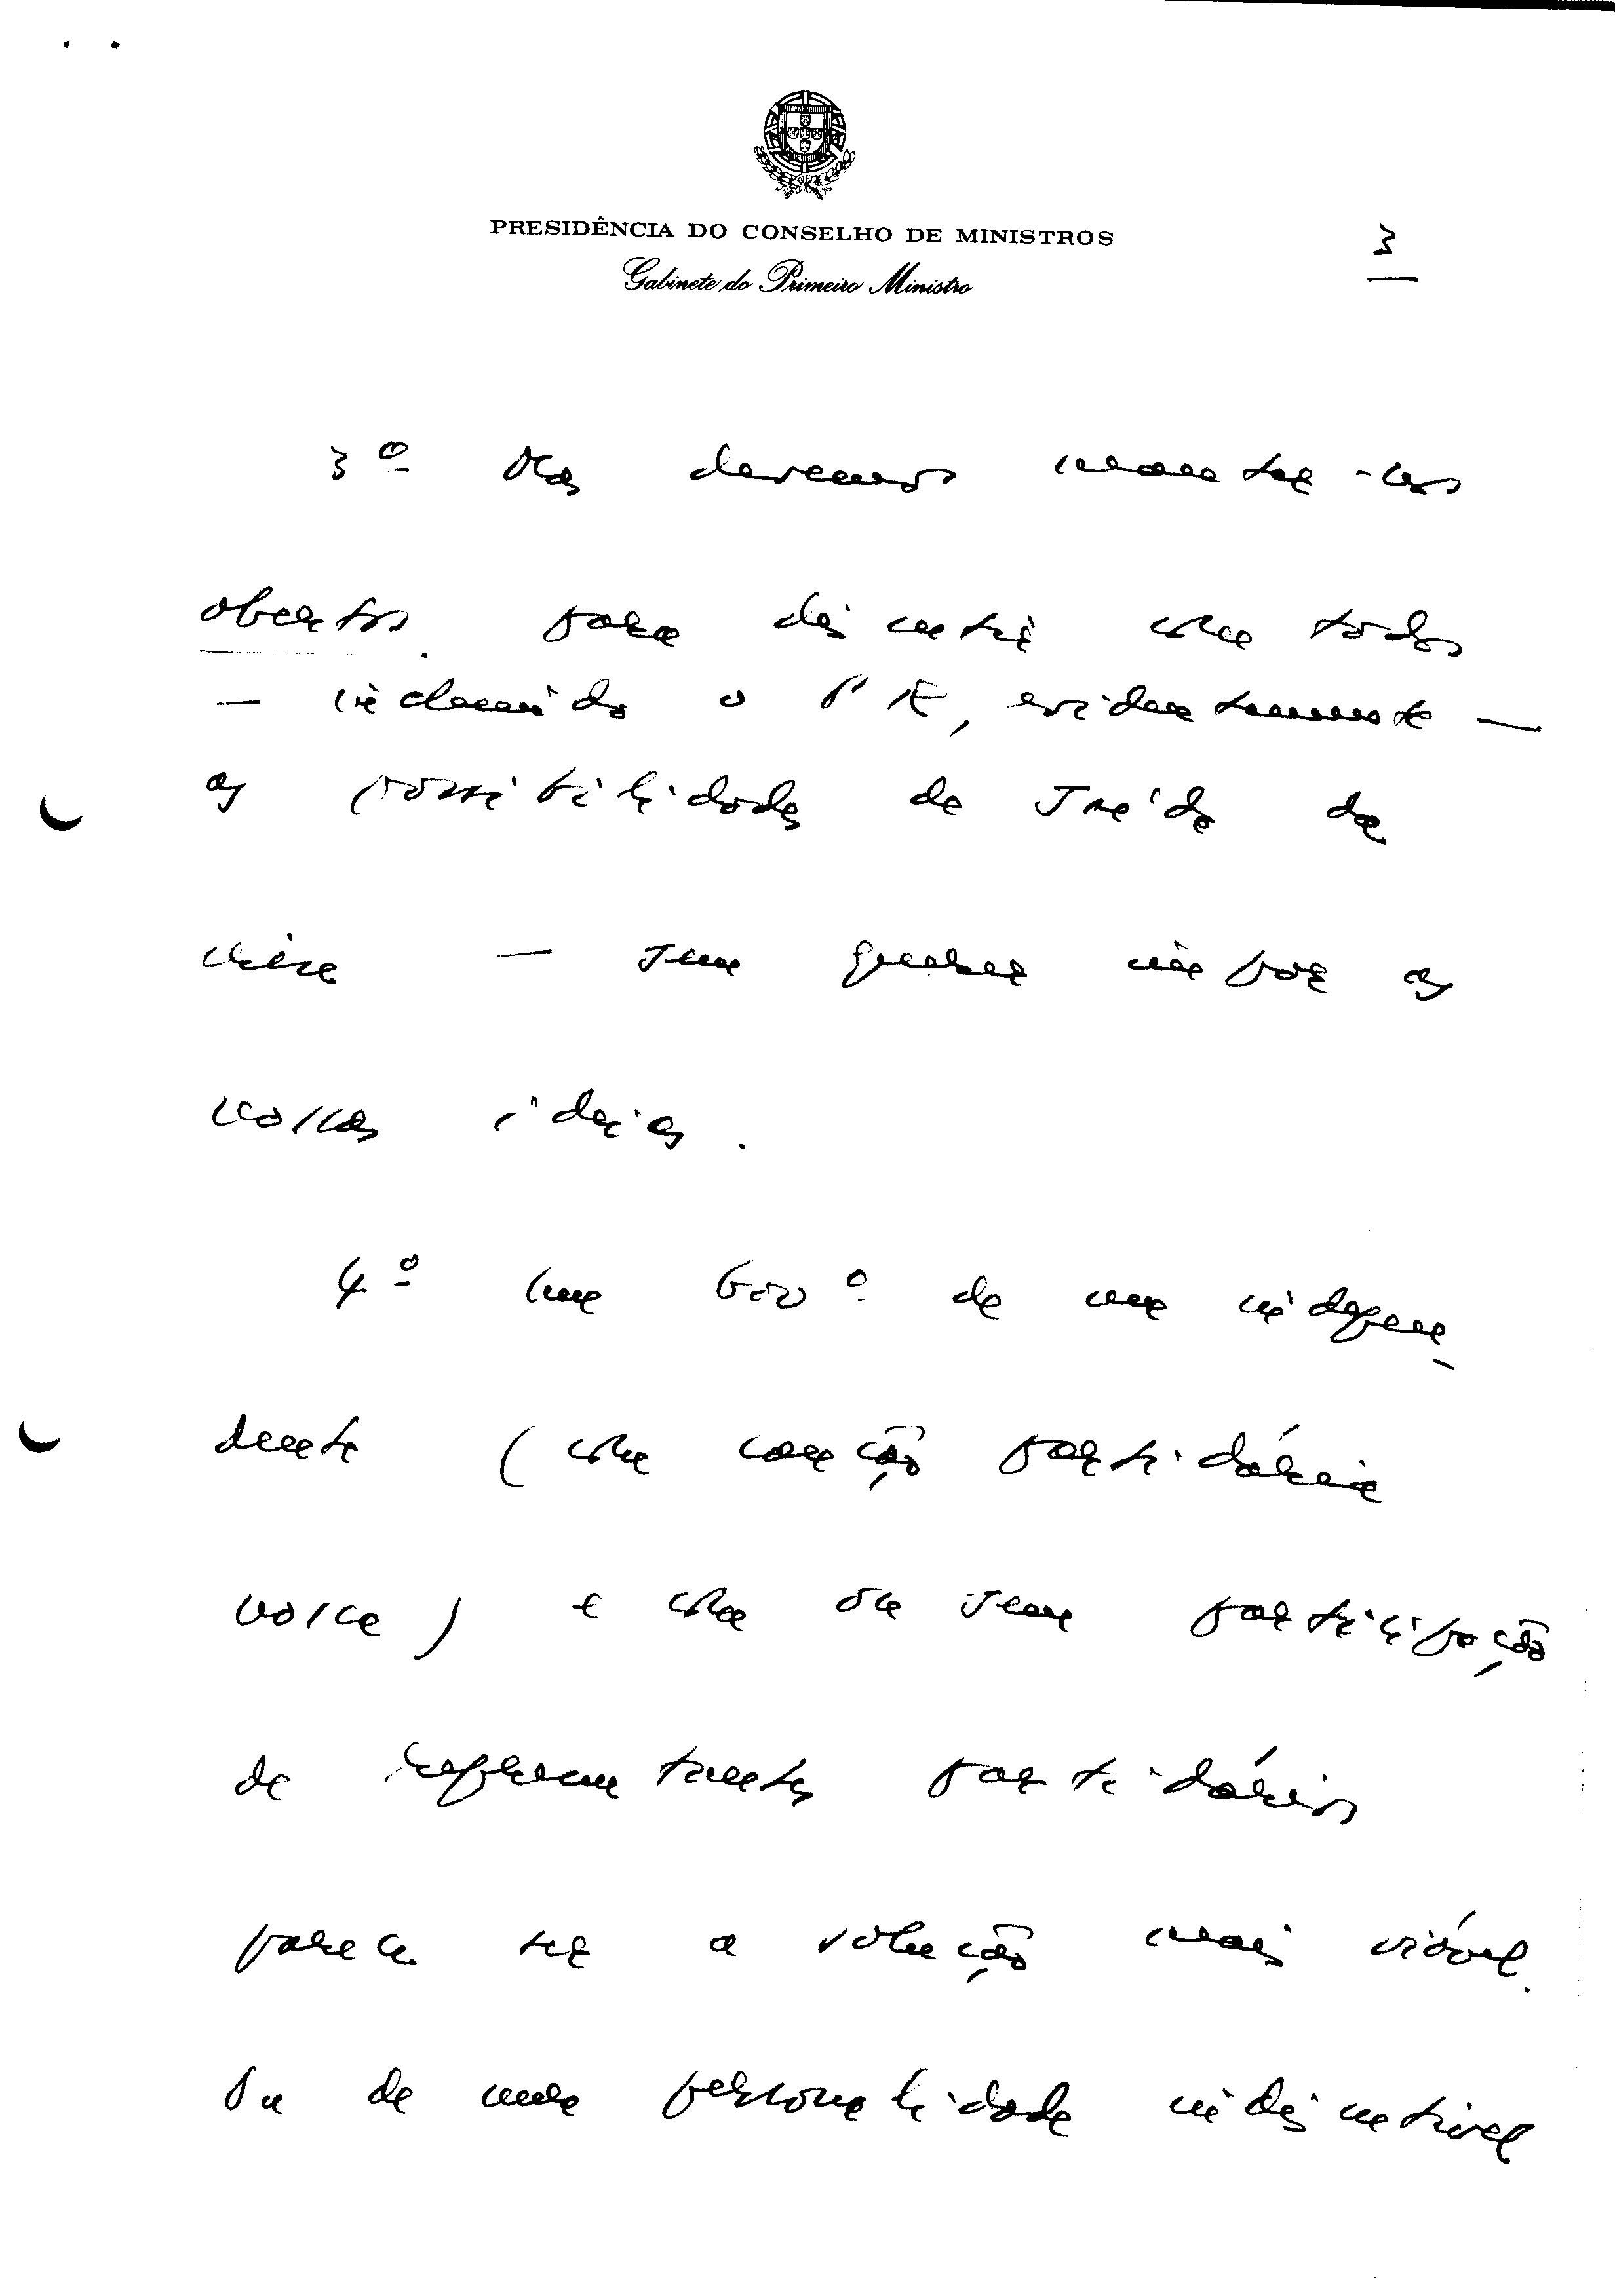 PRESIDÊNCIA DO CONSELHO DE MINISTROS
Gabinete do Primeiro Ministro
3
3º Mas devemos manter-nos
abertos para discutir com todos
— incluindo o PR, evidentemente —
as possibilidades de saída da
crise — sem querer impor as
nossas ideias.
4º Um Govº de um indepen-
dente (com caução partidária
nossa) e com ou sem participação
de representantes partidários
parece ser a solução mais viável.
Ou de uma personalidade indiscutível